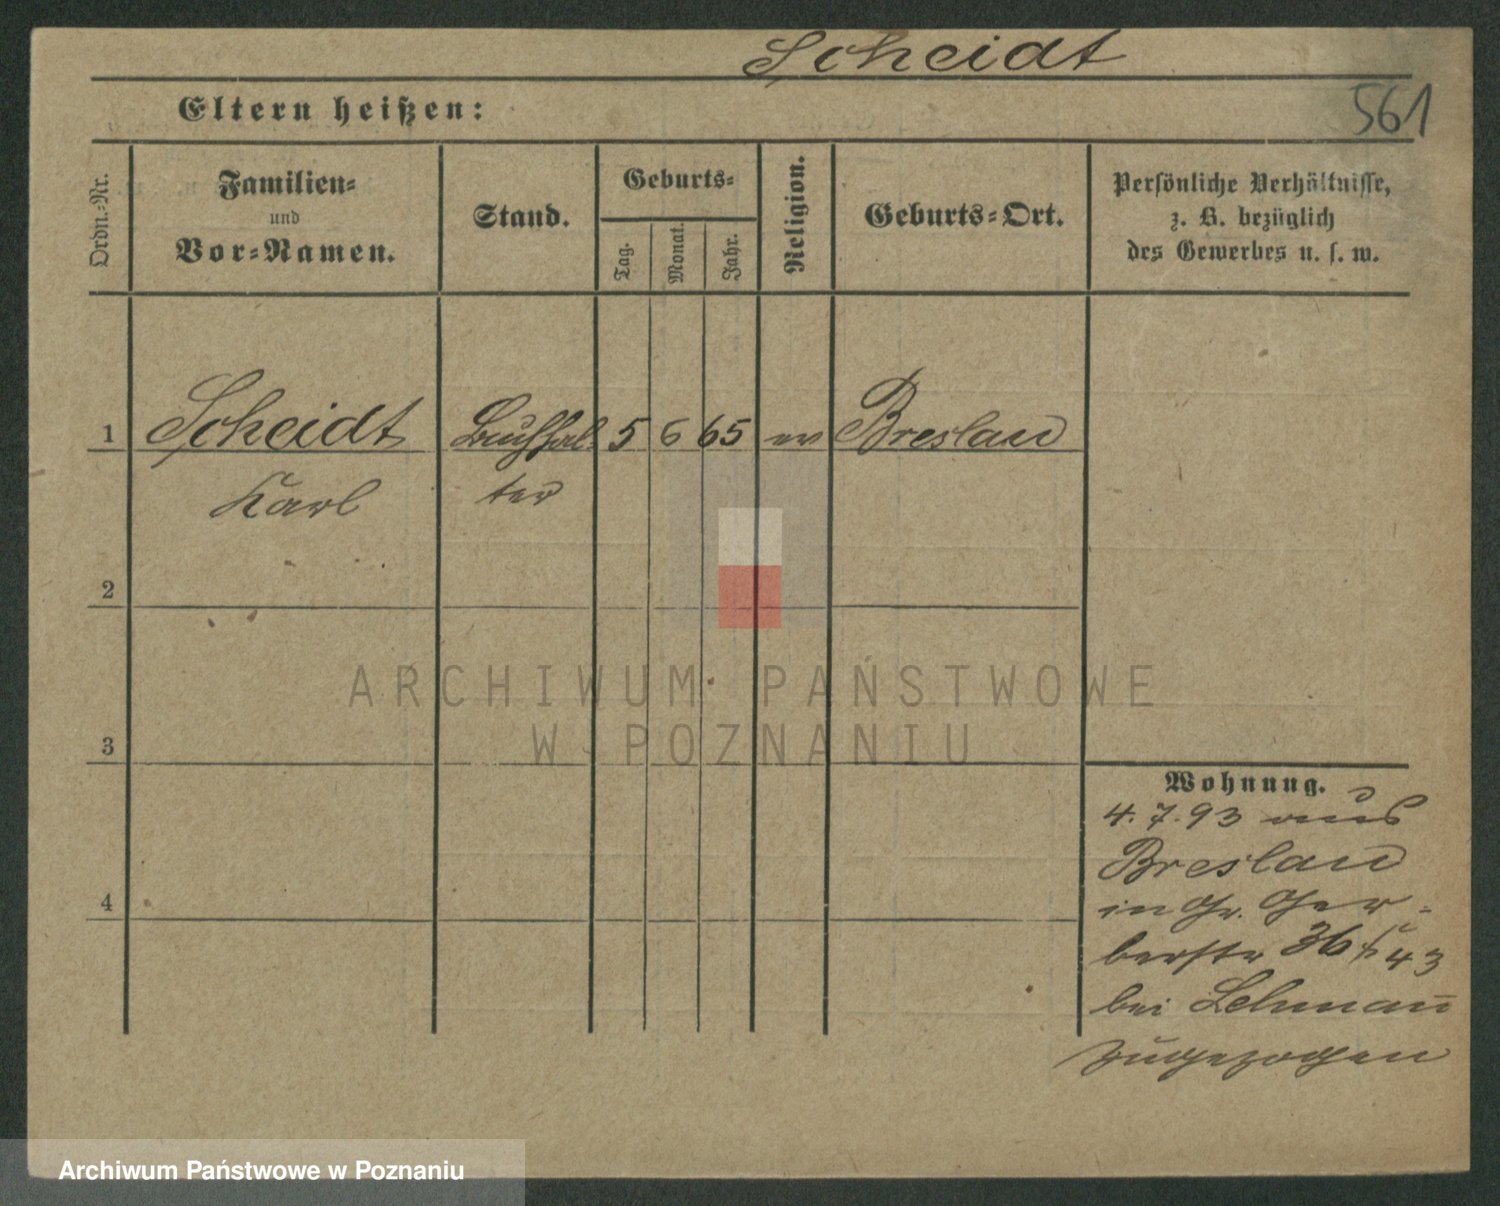 Scheidt
561
Eltern heißen:
Ordn.-Nr.
Familien-
und
Vor-Namen.
Stand.
Geburts-
Tag.
Monat.
Jahr.
Religion.
Geburts-Ort.
Persönliche Verhältnisse,
z. B. bezüglich
des Gewerbes u. s. w.
1 Scheidt Buchhal- 5 6 65 ev Breslau
Karl ter
2
3
4
Wohnung.
4. 7. 93 aus
Breslau
in Gr. Ger-
berstr 36 43
bei Lehman̄
zugezogen
ARCHIWUM PAŃSTWOWE
W POZNANIU
Archiwum Państwowe w Poznaniu